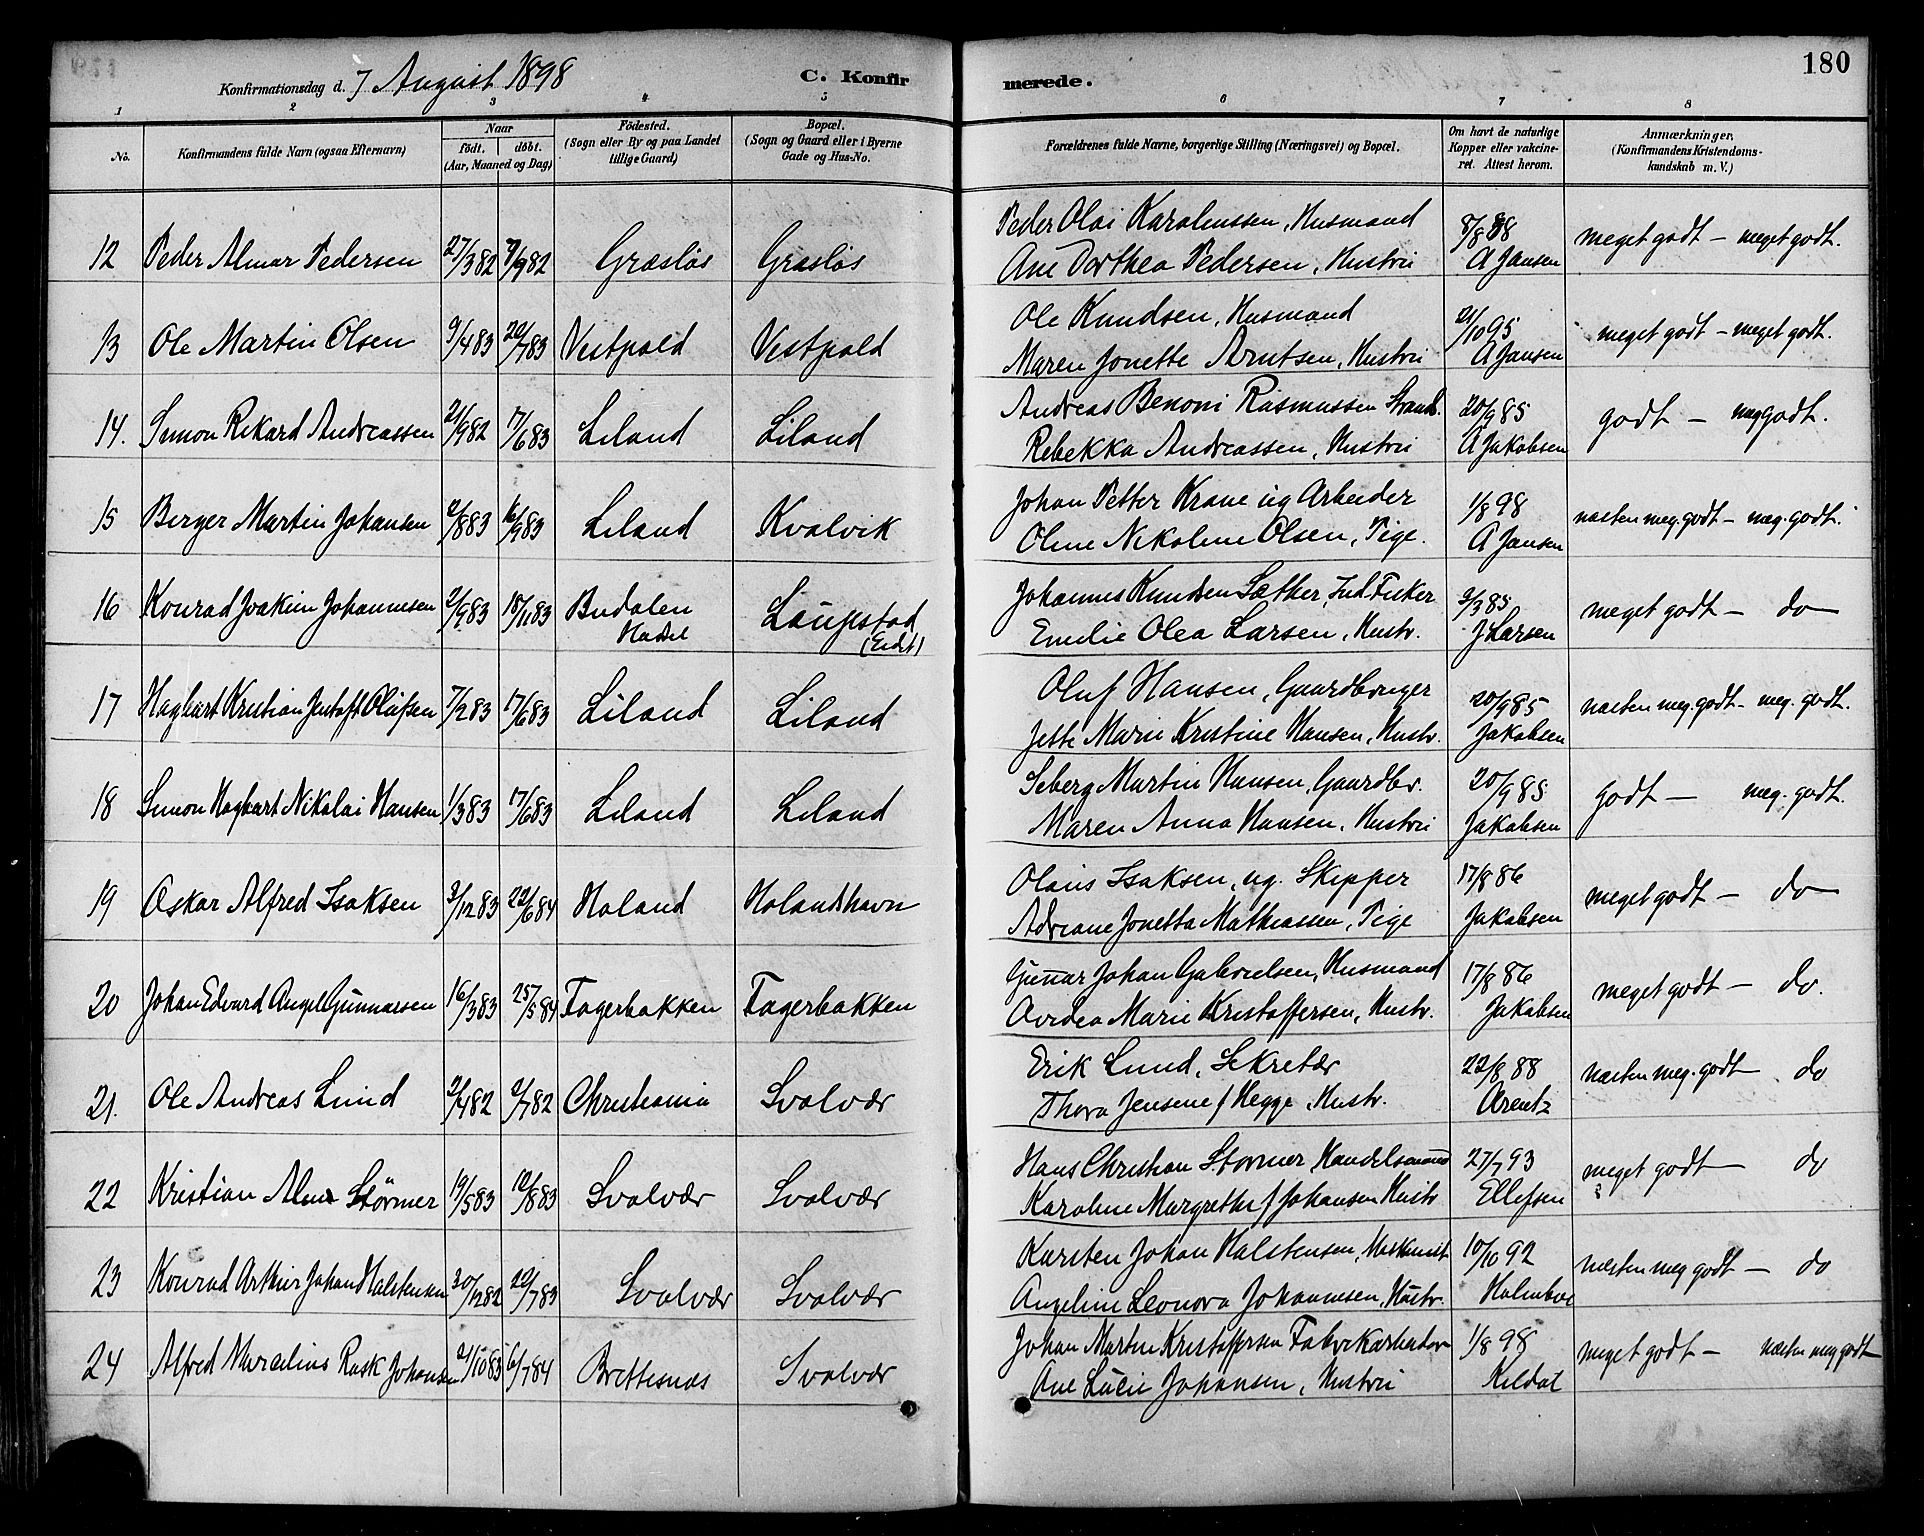 180
Konfirmationsdag d. 7 August 1898 C. Konfirmerede.
1 2 3 4 5 6 7 8
No. Konfirmandens fulde Navn (ogsaa Efternavn) Naar født. døbt. (Aar, Maaned og Dag) Födested. (Sogn eller By og paa Landet tillige Gaard) Bopæl. (Sogn og Gaard eller i Byerne Gade og Hus-No. Forældrenes fulde Navne, borgerlige Stilling (Næringsvei) og Bopæl. Om havt de naturlige Kopper eller vakcineret. Attest herom. Anmærkninger. (Konfirmandens Kristendomskundskab m. V.)
12 Peder Almar Pedersen 27/3 82 7/9 82 Græsløs Græsløs Peder Olai Karolenssen, Husmand 8/8 88 meget godt – meget godt.
Ane Dorthea Pedersen, Hustru A Jansen
13 Ole Martin Olsen 9/4 83 20/7 83 Vestpold Vestpold Ole Knudsen, Husmand 21/10 95 meget godt – meget godt.
Maren Jonette Arntsen, Hustru A Jansen
14. Simon Rikard Andreassen 21/9 82 17/6 83 Liland Liland Andreas Benoni Rasmussen Strands. 20/9 85 godt – meg godt.
Rebekka Andreassen, Hustru A Jakobsen
15 Berger Martin Johansen 2/8 83 16/9 83 Liland Kvalvik Johan Petter Krane ug Arbeider 1/8 98 næsten meg. godt – meg. godt.
Oline Nikoline Olsen, Pige. A Jansen
16 Konrad Joakim Johannesen 2/9 83 18/11 83 Budalen Laupstad Johannes Knudsen Sæther, Ind. Fisker 3/3 85 meget godt – do
Hadsel (Eidet) Emelie Olea Larsen, Hustr. J Larsen
17 Hagbart Kristian Jentoft Olufsen 7/2 83 17/6 83 Liland Liland Oluf Hansen, Gaardbruger 20/9 85 næsten meg. godt – meg. godt.
Jette Marie Kristine Hansen, Hustr. Jakobsen
18 Simon Hagbart Nikolai Hansen 1/3 83 17/6 83 Liland Liland Seberg Martin Hansen, Gaardbr. 20/9 85 godt – meg. godt.
Maren Anna Hansen, Hustru Jakobsen
19 Oskar Alfred Isaksen 3/12 83 22/6 84 Holand Holandshavn Olaus Isaksen, ug. Skipper 17/8 86 meget godt – do
Adriane Jonetta Mathiassen, Pige Jakobsen
20 Johan Edvard Angel Gunnarsen 16/3 83 25/5 84 Fagerbakken Fagerbakken Gunnar Johan Gabrielsen, Husmand 17/8 86 meget godt – do.
Avidea Marie Kristoffersen, Hustr. Jakobsen
21. Ole Andreas Lund 2/4 82 2/7 82 Christiania Svolvær Erik Lund, Sekretær 22/8 88 næsten meg. godt – do
Thora Jensene f Hegge, Hustr. Arentz
22 Kristian Almar Störmer 19/5 83 12/8 83 Svolvær Svolvær Hans Christian Störmer Handelsmand 27/7 93 meget godt – do
Karoline Margrethe f Johansen Hustr Ellefsen
23 Konrad Arthur Johan Halstensen 30/12 82 20/7 83 Svolvær Svolvær Karsten Johan Halstensen, Maskinist 10/10 92 næsten meg godt – do
Angeline Leonora Johannesen, Hustr. Holmboe
24 Alfred Marselius Rask Johansen 2/10 83 6/7 84 Brettesnæs Svolvær Johan Martin Kristoffersen Fabrikarbeider 1/8 98 meget godt – næsten meg godt
Ane Lucie Johansen, Hustru Kildal